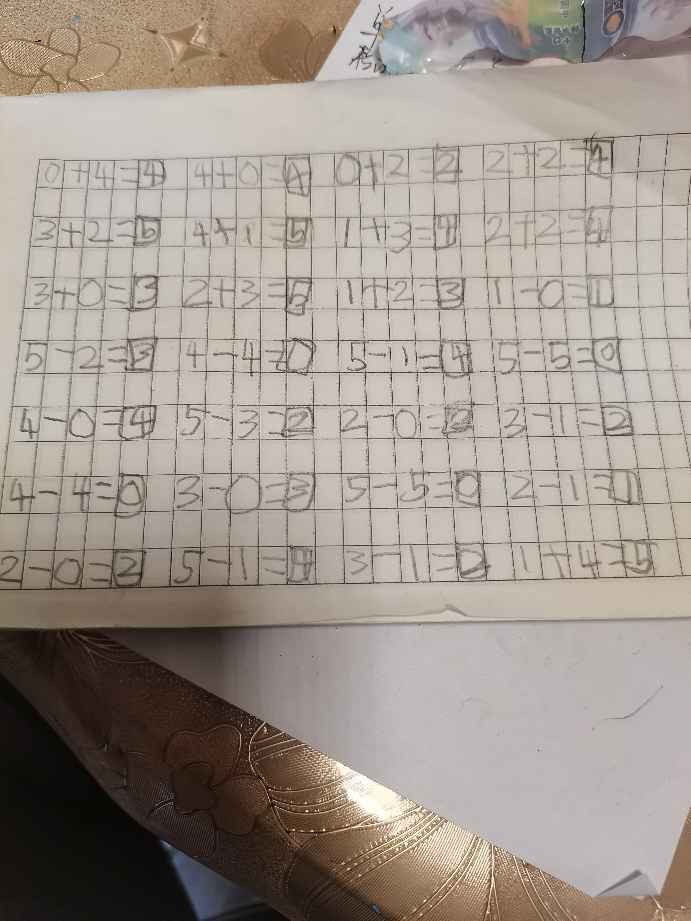 0+4=4 4+0=4 0+2=2 2+2=4
3+2=5 4+1=5 1+3=4 2+2=4
3+0=3 2+3=5 1+2=3 1-0=1
5-2=3 4-4=0 5-1=4 5-5=0
4-0=4 5-3=2 2-0=2 3-1=2
4-4=0 3-0=3 5-5=0 2-1=1
2-0=2 5-1=4 3-1=2 1+4=5